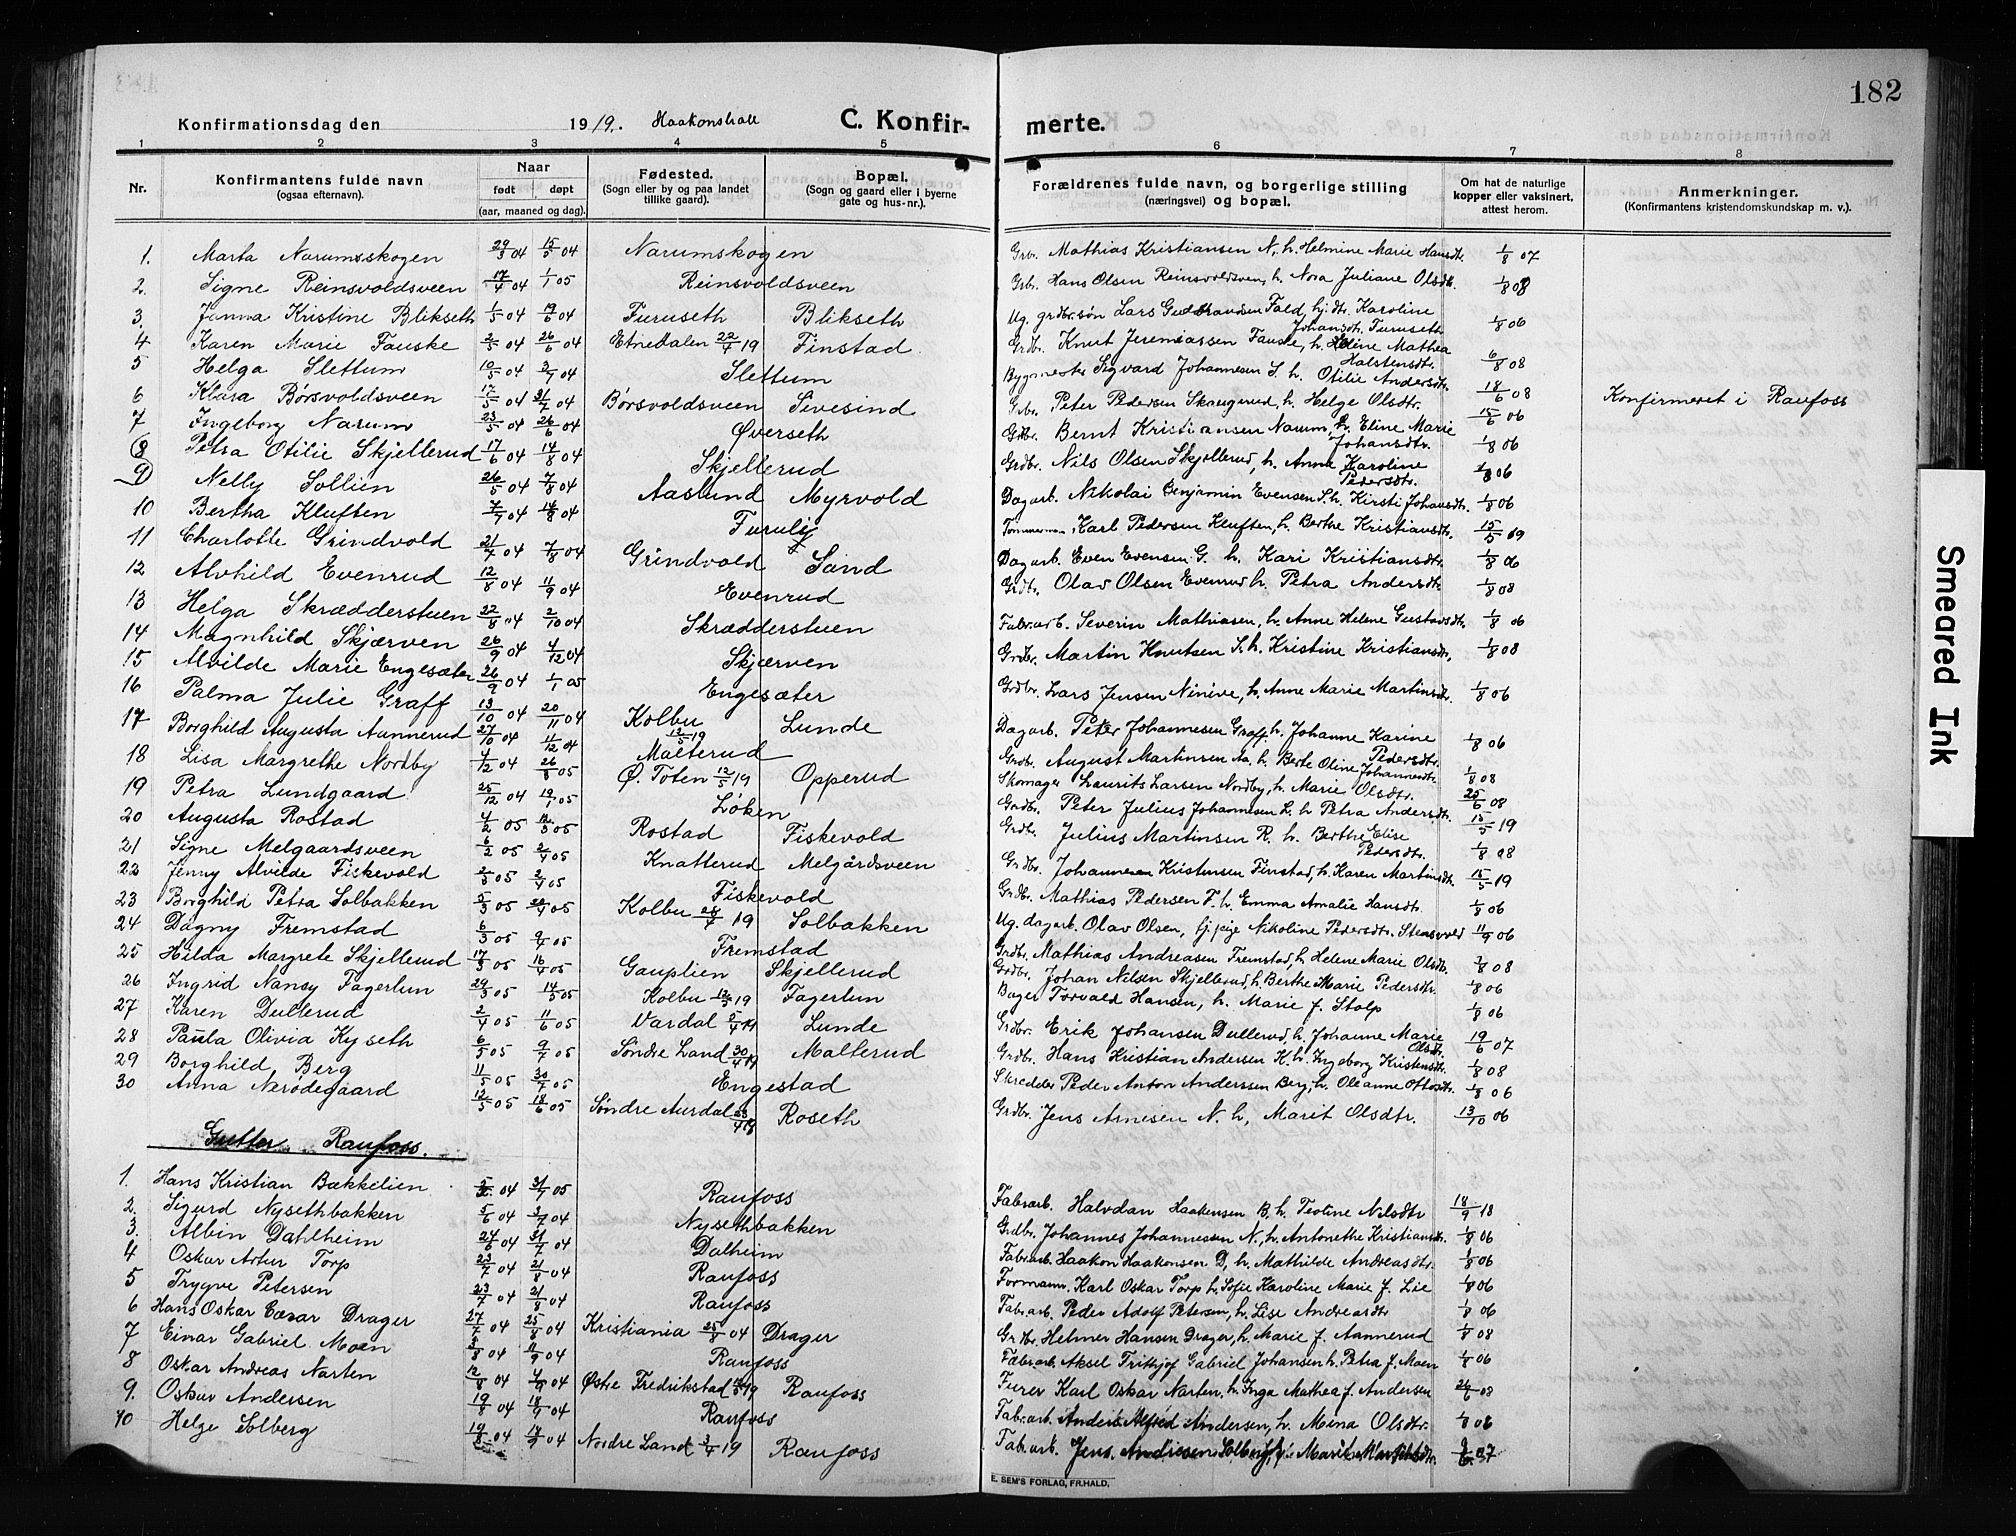 182
Konfirmationsdag den 1919. Haakonshall C. Konfirmerte.
1 2 3 4 5 6 7 8
Nr. Konfirmantens fulde navn (ogsaa efternavn). Naar født døpt (aar, maaned og dag). Fødested. (Sogn eller by og paa landet tillike gaard). Bopæl. (Sogn og gaard eller i byerne gate og hus-nr.). Forældrenes fulde navn, og borgerlige stilling (næringsvei) og bopæl. Om hat de naturlige kopper eller vaksinert, attest herom. Anmerkninger. (Konfirmantens kristendomskundskap m. v.).
1. Marta Narumsskogen 29/3 04 15/5 04 Narumskogen Grb. Mathias Kristiansen N., h. Helmine Marie Hansdtr. 1/8 07
2. Signe Reinsvoldsveen 17/4 04 1/1 05 Reinsvoldsveen Grb. Hans Olsen Reinsvoldsveen, h. Nora Juliane Olsdtr. 1/8 08
3. Janna Kristine Blikseth 1/5 04 19/6 04 Furuseth Blikseth Ug. grdbr.søn Lars Gudbrandsen Fald, hj.dtr. Karoline Johansdtr. Furuseth 1/8 06
4 Karen Marie Fauske 2/5 04 26/6 04 Etnedalen 22/4 19 Finstad Grdbr. Knut Jeremiassen Fauske, h. Heline Mathea Halstensdtr. 6/8 08
5 Helga Slettum 10/5 04 3/7 04 Slettum Bygmester Sigvard Johannesen S. h. Otilie Andersdtr. 18/6 08
6 Klara Børsvoldsveen 17/5 04 31/7 04 Børsvoldsveen Sivesind Grbr. Peter Pedersen Skaugerud, h. Helge Olsdtr. 15/6 06 Konfirmeret i Raufoss
7 Ingeborg Narum 23/5 04 26/6 04 Øverseth Grdbr. Bernt Kristiansen Narum, h. Eline Marie Johansdtr. 1/8 06
8 Petra Otilie Skjellerud 17/6 04 14/8 04 Skjellerud Grdbr. Nils Olsen Skjellerud, h. Anne Karoline Pedersdtr. 1/8 06
9 Nelly Sollien 26/5 04 7/8 04 Aaslund Myrvold Dagarb. Nikolai Benjamin Evensen S. h. Kirsti Johansdtr. 1/8 06
10 Bertha Kluften 7/7 04 14/8 04 Furuly Tømmerman Karl Pedersen Kluften, h. Berthe Kristiansdtr. 15/5 19
11 Charlotte Grindvold 21/7 04 7/8 04 Grindvold Sand Dagarb. Even Evensen G. h. Kari Kristiansdtr. 1/8 06
12 Alvhild Evenrud 12/8 04 11/9 04 Evenrud Grdbr. Olav Olsen Evenrud h. Petra Andersdtr. 1/8 08
13 Helga Skrædderstuen 22/8 04 2/10 04 Skrædderstuen Fabr.arb. Severin Mathiasen, h. Anne Helene Gustavsdtr. 1/8 06
14 Magnhild Skjærven 26/9 04 4/12 04 Skjærven Grdbr. Martin Knutsen S. h. Kristine Kristiansdtr. 1/8 08
15 Alvilde Marie Engesæter 26/9 04 1/1 05 Engesæter Grdbr. Lars Jensen Ninive, h. Anne Marie Martinsdtr. 1/8 06
16 Palma Julie Graff 13/10 04 20/11 04 Kolbu 13/5 19 Lunde Dagarb. Peter Johannesen Graff, h. Johanne Karine Pedersdtr. 1/8 06
17 Borghild Augusta Aannerud 27/10 04 11/12 04 Malterud Grdbr. August Martinsen Aa. h. Berte Oline Johannesdtr. 1/8 08
18 Lisa Margrethe Nordby 4/12 04 26/8 05 Ø. Toten 12/5 19 Opperud Skomager Laurits Larsen Nordby, h. Marie Olsdtr. 25/6 08
19 Petra Lundgaard 25/12 04 19/1 05 Løken Grdbr. Peter Julius Johannesen L. h. Petra Andersdtr. 15/5 19
20 Augusta Rostad 4/2 05 12/3 05 Rostad Fiskevold Grdbr. Julius Martinsen R. h. Berthe Elise Pedersdtr. 1/8 08
21 Signe Melgaardsveen 6/2 05 2/4 05 Knatterud Melgårdsveen Grdbr. Johannesen Kristensen Finstad, h. Karen Martinsdtr. 15/5 19
22 Jenny Alvilde Fiskevold 2/3 05 2/4 05 Fiskevold Grdbr. Mathias Pedersen F. h. Emma Amalie Hansdtr. 1/8 06
23 Borghild Petra Solbakken 5/3 05 20/4 05 Kolbu 28/4 19 Solbakken Ug. dagarb. Olav Olsen, Gj. pige Nikoline Pedersdtr. Stensvold 11/9 06
24 Dagny Fremstad 6/3 05 9/4 05 Fremstad Grdbr. Mathias Andreasen Fremstad, h. Helene Marie Olsdtr. 1/8 08
25 Hilda Margrete Skjellerud 17/3 05 16/4 05 Gauplien Skjellerud Grdbr. Johan Nilsen Skjellerud, h. Berthe Marie Pedersdtr. 1/8 06
26 Ingrid Nancy Fagerlun 29/3 05 14/5 05 Kolbu 12/5 19 Fagerlun Bager Torvald Hansen, h. Marie f. Stolp 1/8 06
27 Karen Dullerud 2/4 05 11/6 05 Vardal 5/4 19 Lunde Grdbr. Erik Johansen Dullerud, h. Johanne Marie Olsdtr. 19/6 07
28 Paula Olivia Kyseth 6/5 05 9/7 05 Søndre Land 30/4 19 Malterud Grdbr. Hans Kristian Andersen K. h. Ingeborg Kristensdtr. 1/8 08
29 Borghild Berg 11/5 05 30/7 05 Engestad Skredder Peder Anton Anderssen Berg, h. Oleanne Ottosdtr. 1/8 06
30 Anna Nerødegaard 12/5 05 18/6 05 Søndre Aurdal Roseth Grdbr. Jens Arnesen N. h, Marit Olsdtr. 13/10 06
Gutter Raufoss.
1. Hans Kristian Bakkelien 04 31/7 05 Raufoss Fabr.arb. Halvdan Haakensen B. h. Teoline Nilsdtr 18/9 18
2. Sigurd Nysethbakken 5/6 04 3/7 04 Nysethbakken Grdbr. Johannes Johannessen N., h. Antonethe Kristiansdtr. 1/8 06
3. Albin Dahlheim 24/6 04 31/7 04 Dalheim Fabr.arb. Haakon Haakonsen D, h. Mathilde Andreasdtr. 1/8 06
4 Oskar Artur Torp 23/7 04 21/8 04 Raufoss Formann. Karl Oskar Torp h. Sofie Karoline Marie f. Lie 1/8 06
5 Trygve Petersen 23/7 04 21/8 04 Raufoss Fabr.arb. Peder Adolf Petersen, h. Lise Andreasdtr 1/8 06
6 Hans Oskar Cæsar Drager 27/7 04 25/8 04 Kristiania 25/8 04 Drager Grdbr. Helmer Hansen Drager, h. Marie f. Aannerud 1/8 08
7 Einar Gabriel Moen 3/8 04 11/9 04 Raufoss Fabr.arb. Aksel Frithjof Gabriel Johansen h. Petra f. Moen 1/8 06
8 Oskar Andreas Narten 12/8 04 4/9 04 Østre Fredrikstad 19 Raufoss Furer Karl Oskar Narten, h. Inga Mathea f. Andersen 26/6 08
9. Oskar Andersen 19/8 04 18/9 04 Raufoss Fabr.arb. Anders Alfred Andersen, h. Mina Olsdtr. 1/8 06
10 Helge Solberg 19/8 04 17/9 04 Nordre Land 3/4 19 Raufoss Fabr.arb. Jens Andresen Solberg, h. Marie 07
E. SEM'S FORLAG, FR.HALD.
Smeared Ink